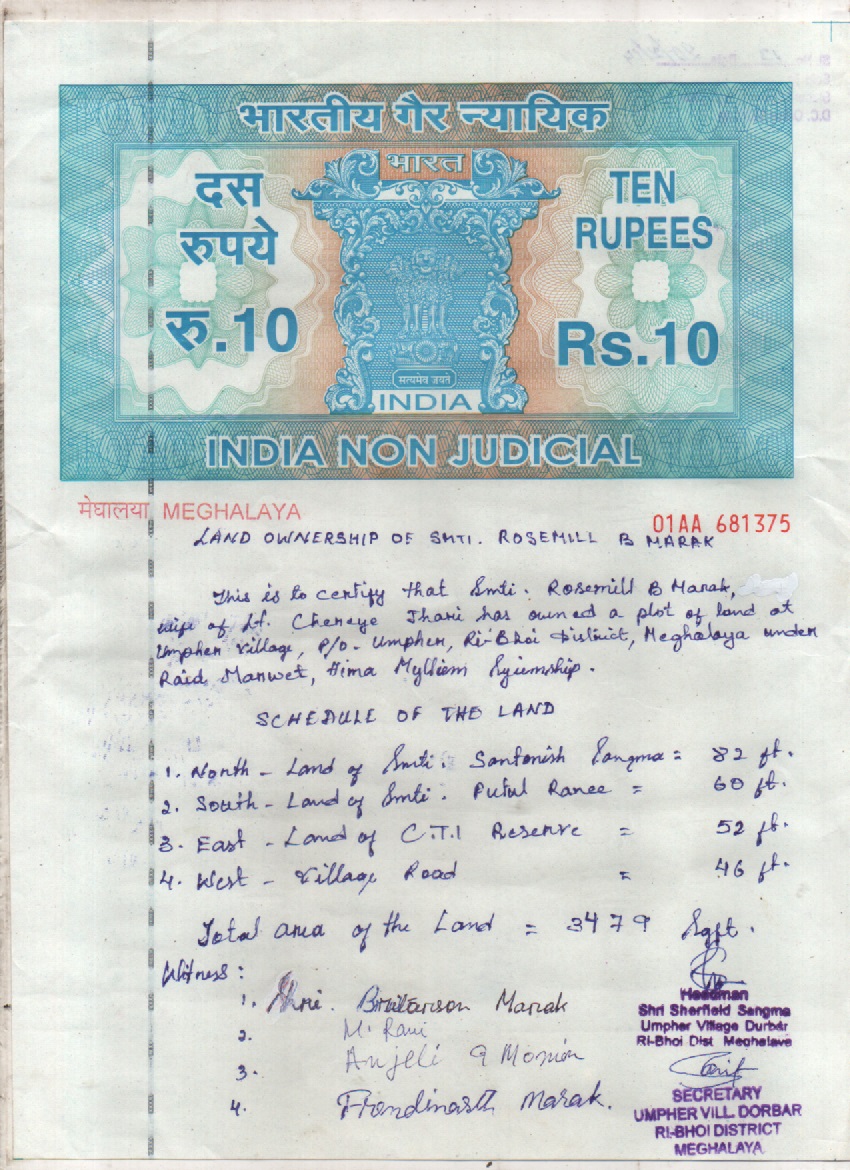 भारतीय गैर न्यायिक
भारत
दस
रुपये
रु.10
TEN
RUPEES
Rs.10
सत्यमेव जयते
INDIA
INDIA NON JUDICIAL
मेघालया MEGHALAYA
01AA 681375
LAND OWNERSHIP OF SMTI. ROSEMILL B MARAK
This is to certify that Smti. Rosemill B Marak,
wife of Lt. Cheneye Thari has owned a plot of land at
Umpher Village, P/O- Umpher, Ri-Bhoi District, Meghalaya under
Raid Marwet, Hima Mylliem Syiemship.
SCHEDULE OF THE LAND
1. North - Land of Smti. Santonish Sangma = 82 ft.
2. South - Land of Smti. Putul Ranee = 60 ft.
3. East - Land of C.T.I Reserve = 52 ft.
4. West - Village Road = 46 ft.
Total area of the Land = 3479 Sqft.
Witness:
1. Shri. Marak
2. M. Rani
3. Anjeli G Momin
4. Marak.
Headman
Shri Sherfield Sangma
Umpher Village Durbar
Ri-Bhoi Dist Meghalaya
SECRETARY
UMPHER VILL. DORBAR
RI-BHOI DISTRICT
MEGHALAYA